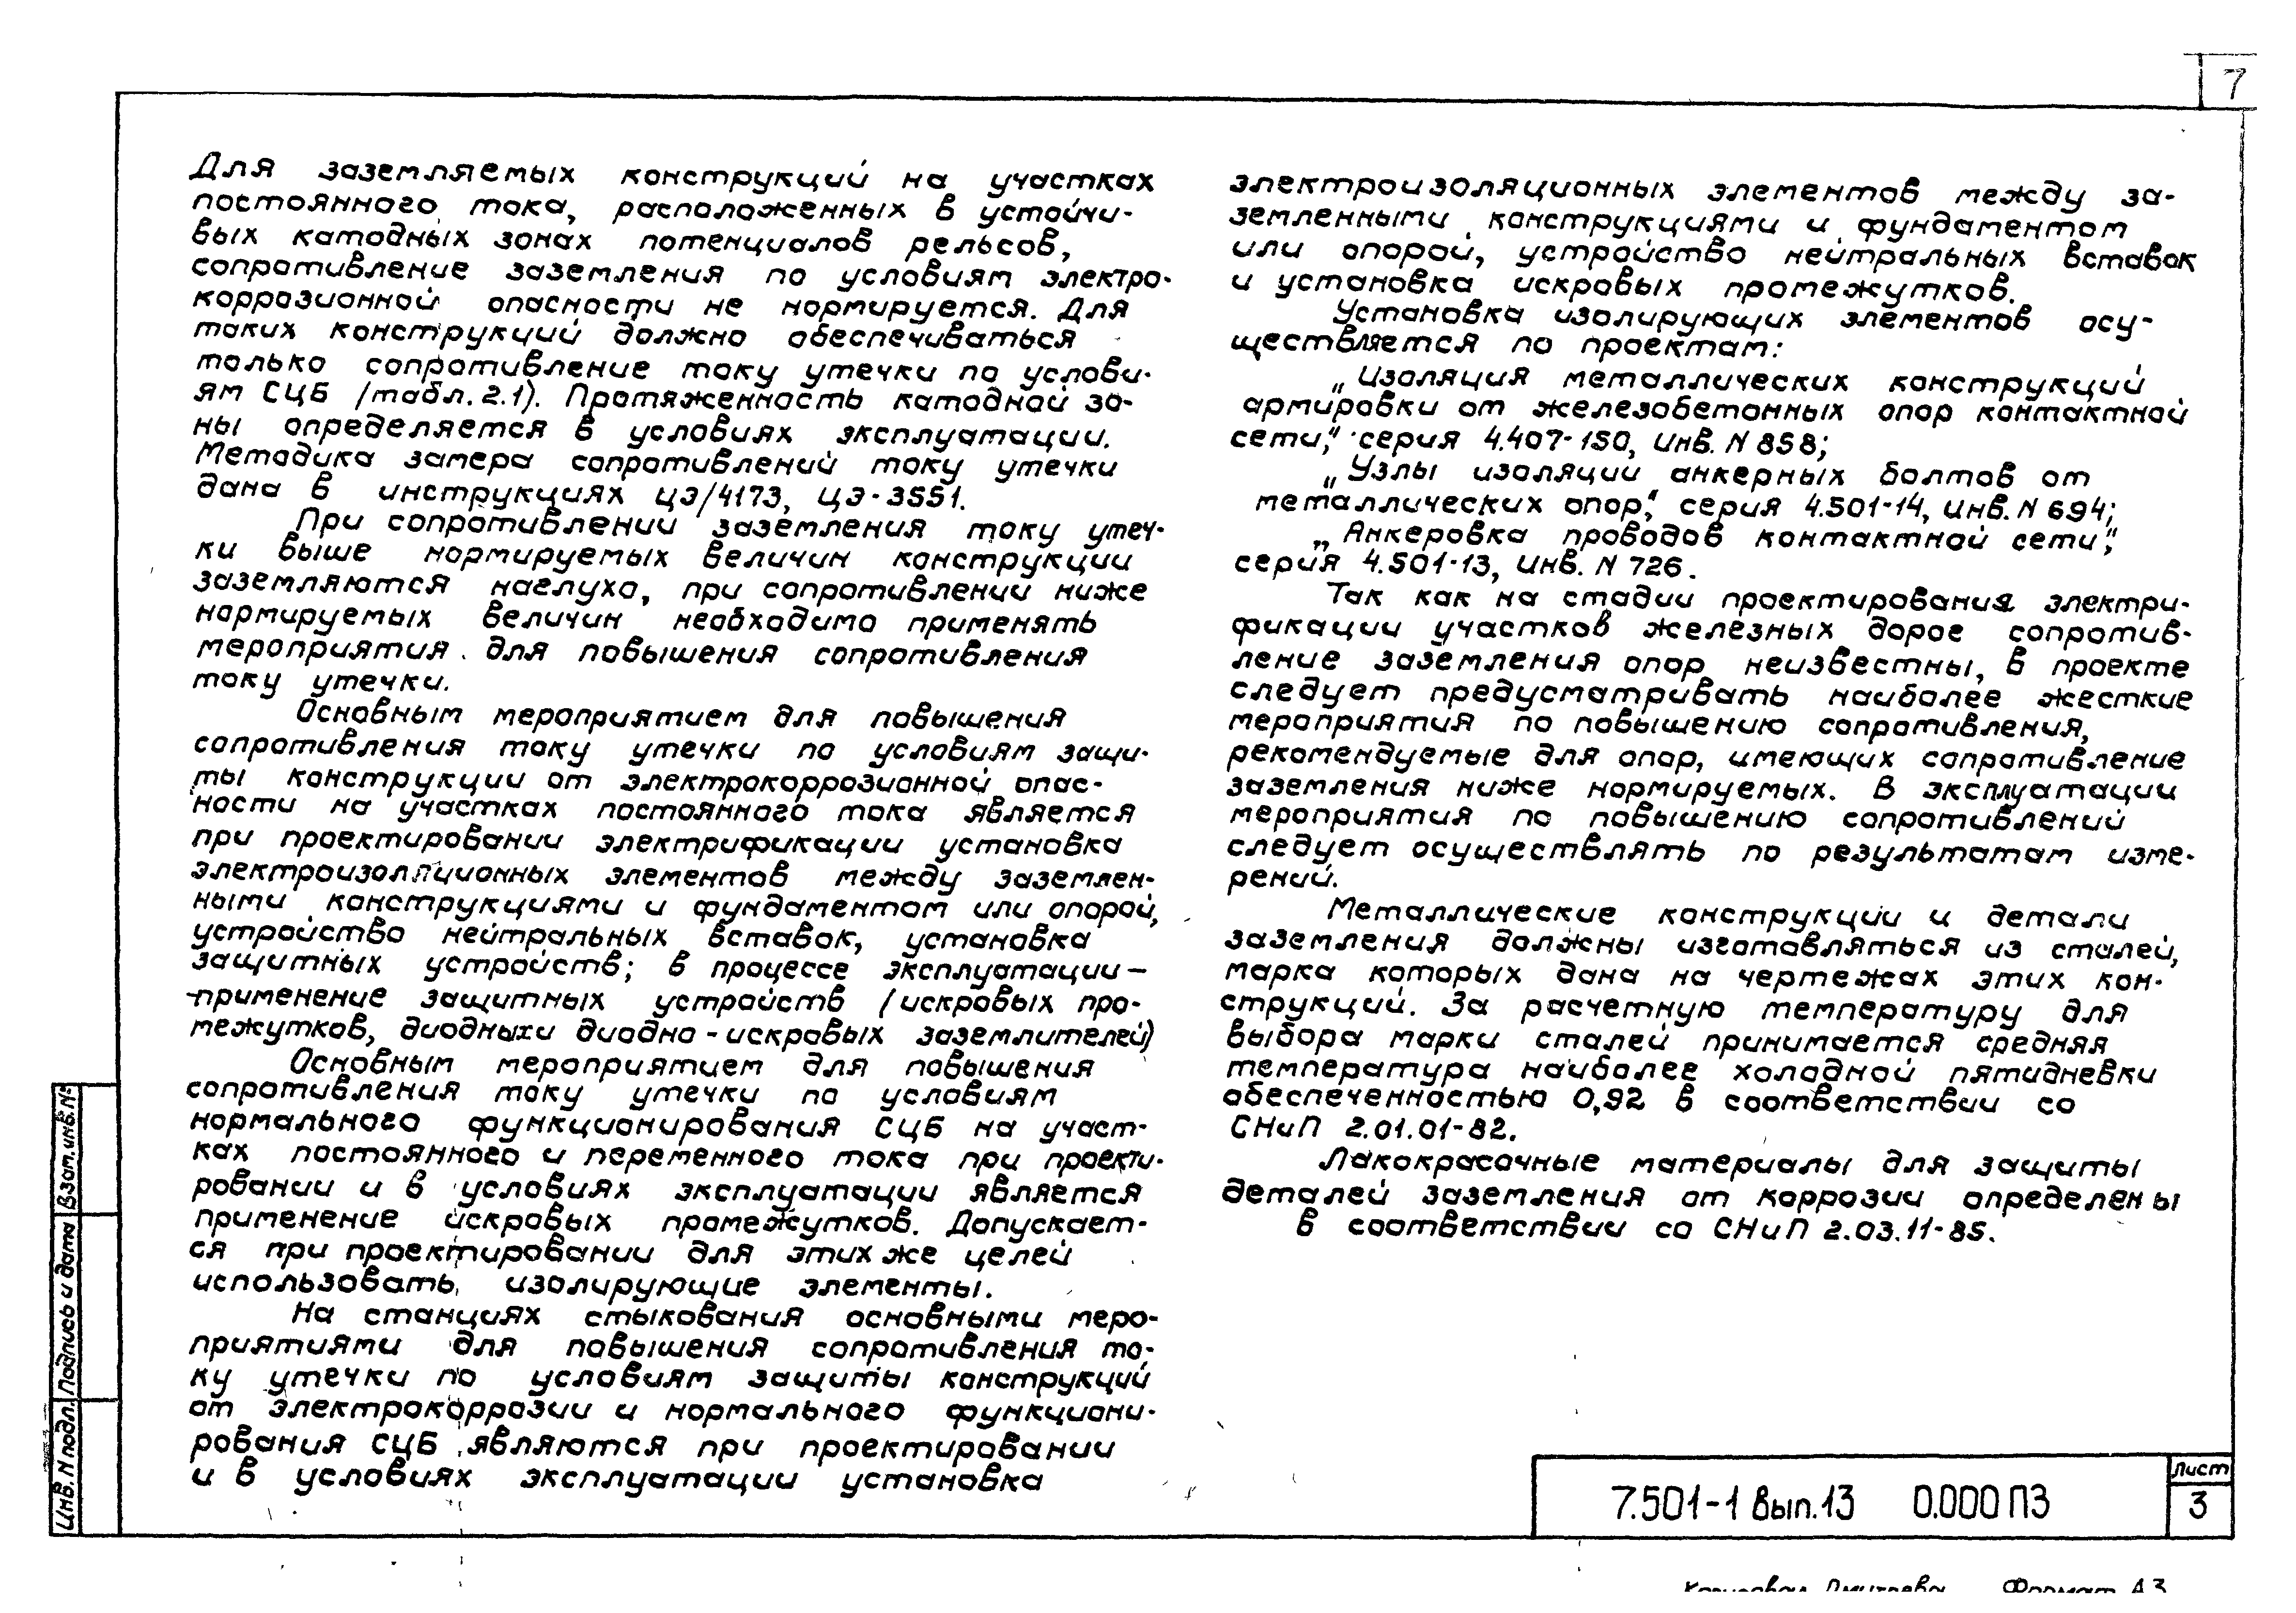 7
Для заземляемых конструкций на участках
постоянного тока, расположенных в устойчи-
вых катодных зонах потенциалов рельсов,
сопротивление заземления по условиям электро-
коррозионной опасности не нормируется. Для
таких конструкций должно обеспечиваться
только сопротивление току утечки по услови-
ям СЦБ /табл. 2.1). Протяженность катодной зо-
ны определяется в условиях эксплуатации.
Методика замера сопротивлений току утечки
дана в инструкциях ЦЭ/4173, ЦЭ-3551.
При сопротивлении заземления току утеч-
ки выше нормируемых величин конструкции
заземляются наглухо, при сопротивлении ниже
нормируемых величин необходимо применять
мероприятия для повышения сопротивления
току утечки.
Основным мероприятием для повышения
сопротивления току утечки по условиям защи-
ты конструкции от электрокоррозионной опас-
ности на участках постоянного тока является
при проектировании электрификации установка
электроизоляционных элементов между заземлен-
ными конструкциями и фундаментом или опорой,
устройство нейтральных вставок, установка
защитных устройств; в процессе эксплуатации —
-применение защитных устройств /искровых про-
межутков, диодных и диодно-искровых заземлителей)
Основным мероприятием для повышения
сопротивления току утечки по условиям
нормального функционирования СЦБ на участ-
ках постоянного и переменного тока при проекти-
ровании и в условиях эксплуатации является
применение искровых промежутков. Допускает-
ся при проектировании для этих же целей
использовать изолирующие элементы.
На станциях стыкования основными меро-
приятиями для повышения сопротивления то-
ку утечки по условиям защиты конструкций
от электрокоррозии и нормального функциони-
рования СЦБ являются при проектировании
и в условиях эксплуатации установка
электроизоляционных элементов между за-
земленными конструкциями и фундаментом
или опорой, устройство нейтральных вставок
и установка искровых промежутков.
Установка изолирующих элементов осу-
ществляется по проектам:
„Изоляция металлических конструкций
армировки от железобетонных опор контактной
сети," серия 4.407-150, инв. N 858;
„Узлы изоляции анкерных болтов от
металлических опор," серия 4.501-14, инв. N 694;
„Анкеровка проводов контактной сети",
серия 4.501-13, инв. N 726.
Так как на стадии проектирования электри-
фикации участков железных дорог сопротив-
ление заземления опор неизвестны, в проекте
следует предусматривать наиболее жесткие
мероприятия по повышению сопротивления,
рекомендуемые для опор, имеющих сопротивление
заземления ниже нормируемых. В эксплуатации
мероприятия по повышению сопротивлений
следует осуществлять по результатам изме-
рений.
Металлические конструкции и детали
заземления должны изготавляться из сталей,
марка которых дана на чертежах этих кон-
струкций. За расчетную температуру для
выбора марки сталей принимается средняя
температура наиболее холодной пятидневки
обеспеченностью 0,92 в соответствии со
СНиП 2.01.01-82.
Лакокрасочные материалы для защиты
деталей заземления от коррозии определены
в соответствии со СНиП 2.03.11-85.
Инв. N подл. Подпись и дата Взам. инв. №
7.501-1 Вып.13 0.000 ПЗ
Лист
3
Копировал Дмитриева Формат А3